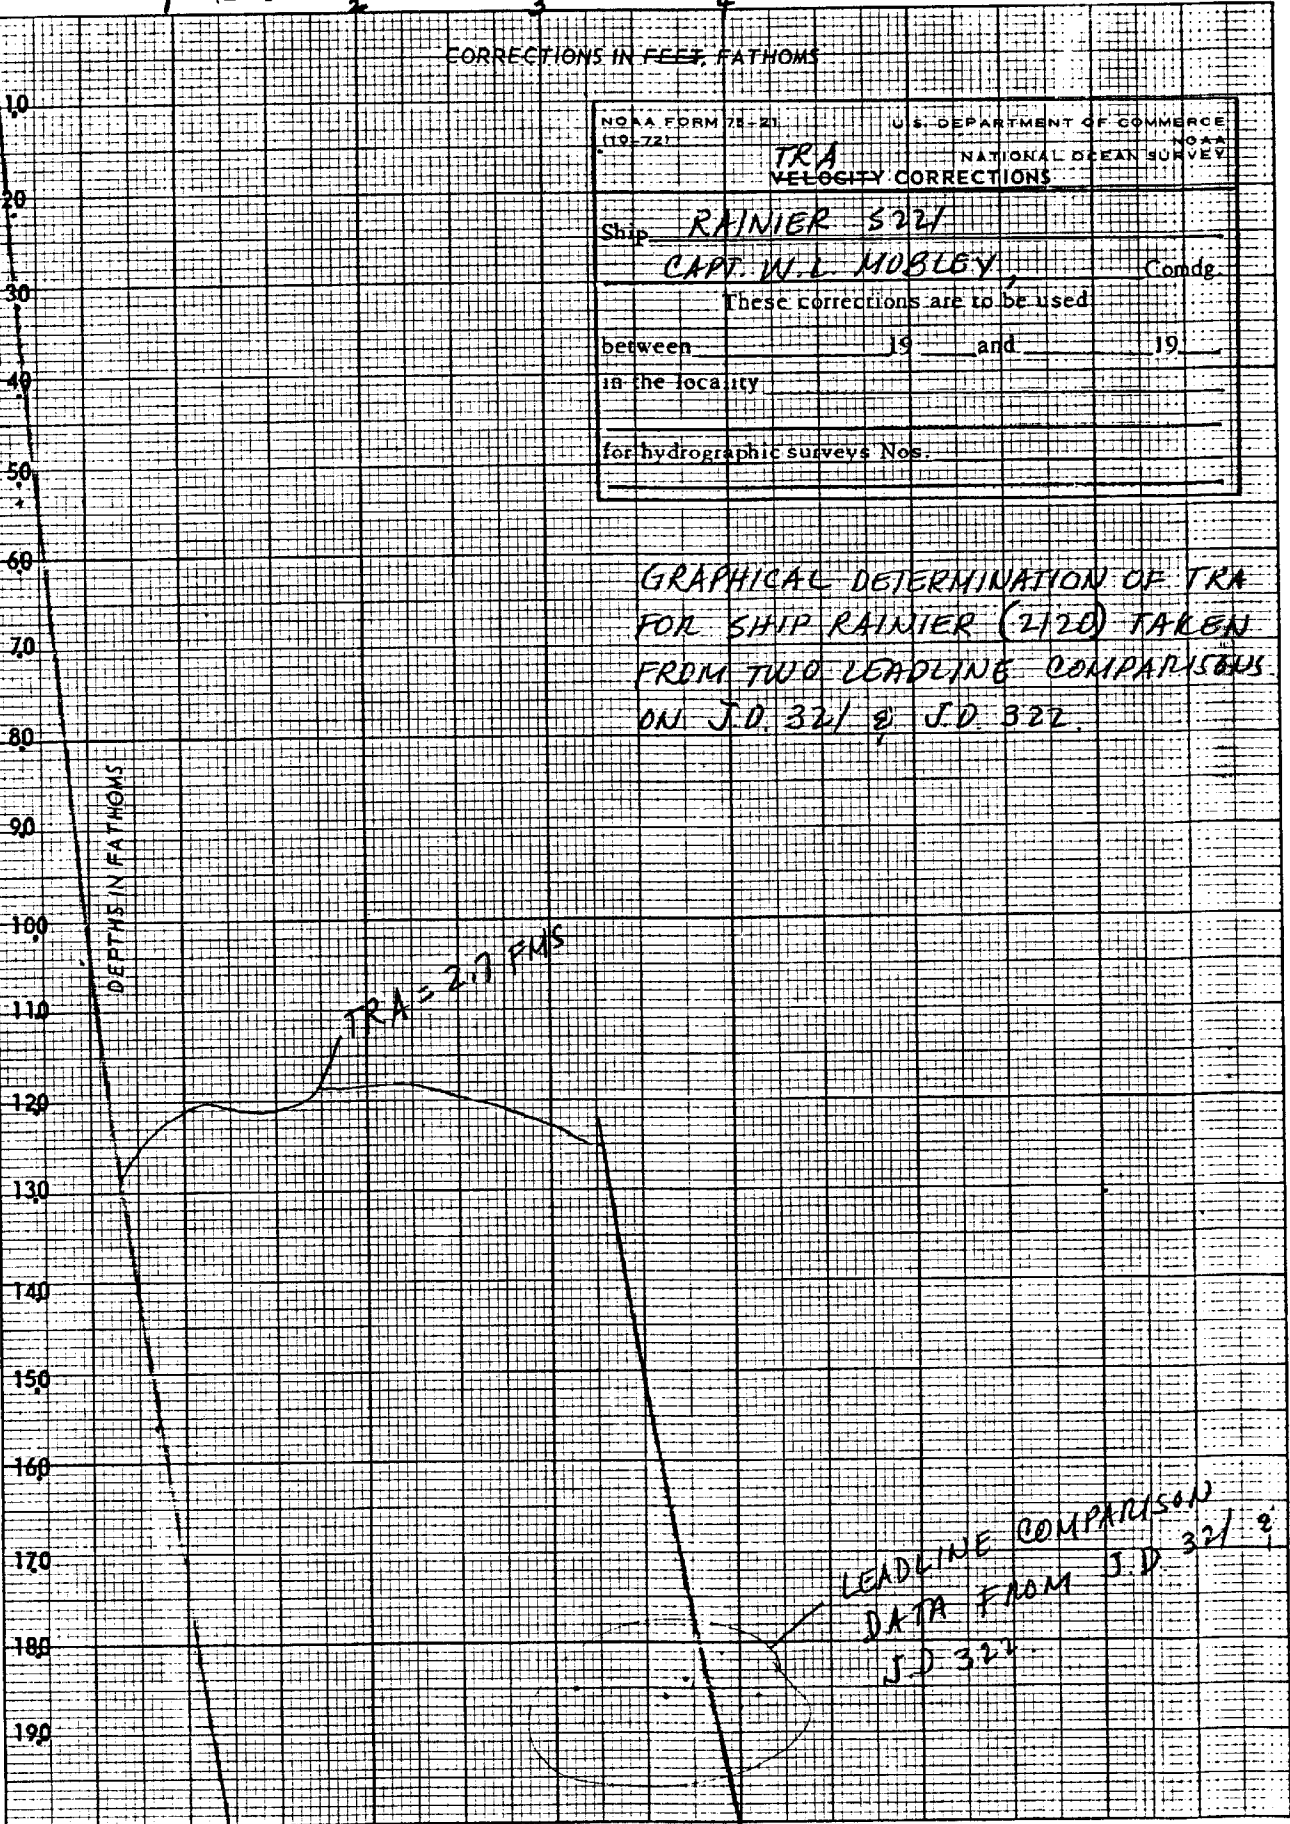 1 2 3 4
CORRECTIONS IN FEET, FATHOMS
NOAA FORM 75-21
(10-72)
U.S. DEPARTMENT OF COMMERCE
NOAA
NATIONAL OCEAN SURVEY
TRA
VELOCITY CORRECTIONS
Ship RAINIER S221
CAPT. W.L. MOBLEY, Comdg.
These corrections are to be used
between 19 and 19
in the locality
for hydrographic surveys Nos.
GRAPHICAL DETERMINATION OF TRA
FOR SHIP RAINIER (2120) TAKEN
FROM TWO LEADLINE COMPARISONS
ON J.D. 321 & J.D. 322.
10
20
30
40
50
60
70
80
90
100
110
120
130
140
150
160
170
180
190
DEPTHS IN FATHOMS
TRA = 2.7 FMS
LEADLINE COMPARISON
DATA FROM J.D. 321 &
J.D 322.